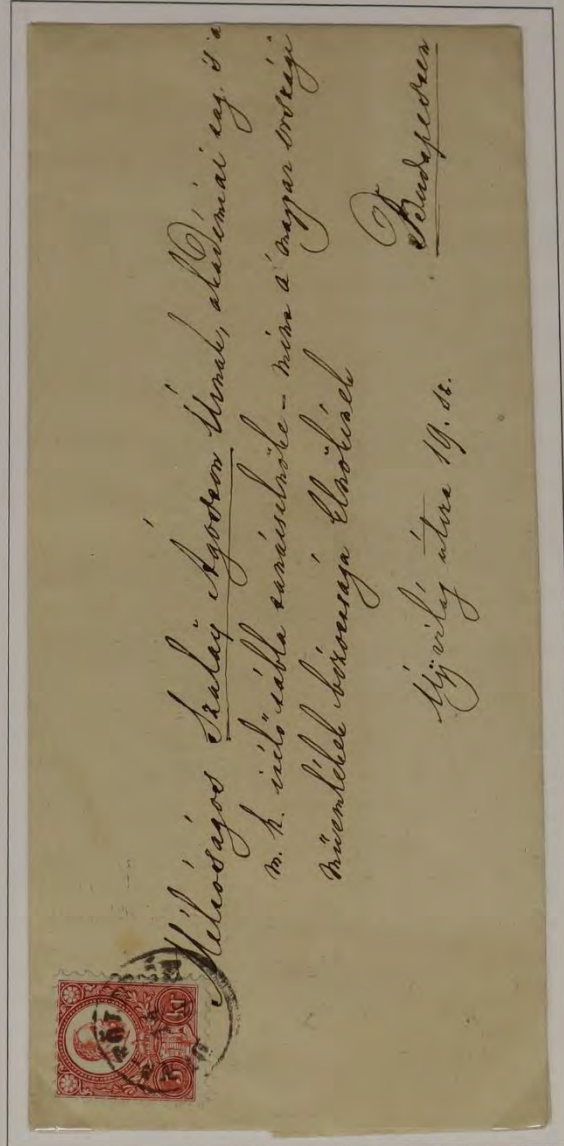 Méltóságos Szalay Ágoston Úrnak, akadémiai tag és a
m. k. itélő tábla tanácselnöke – mint a magyar országi
műemlékek bizottsága Elnökének
Budapesten
Újvilág útcza 19. sz.
5 KR